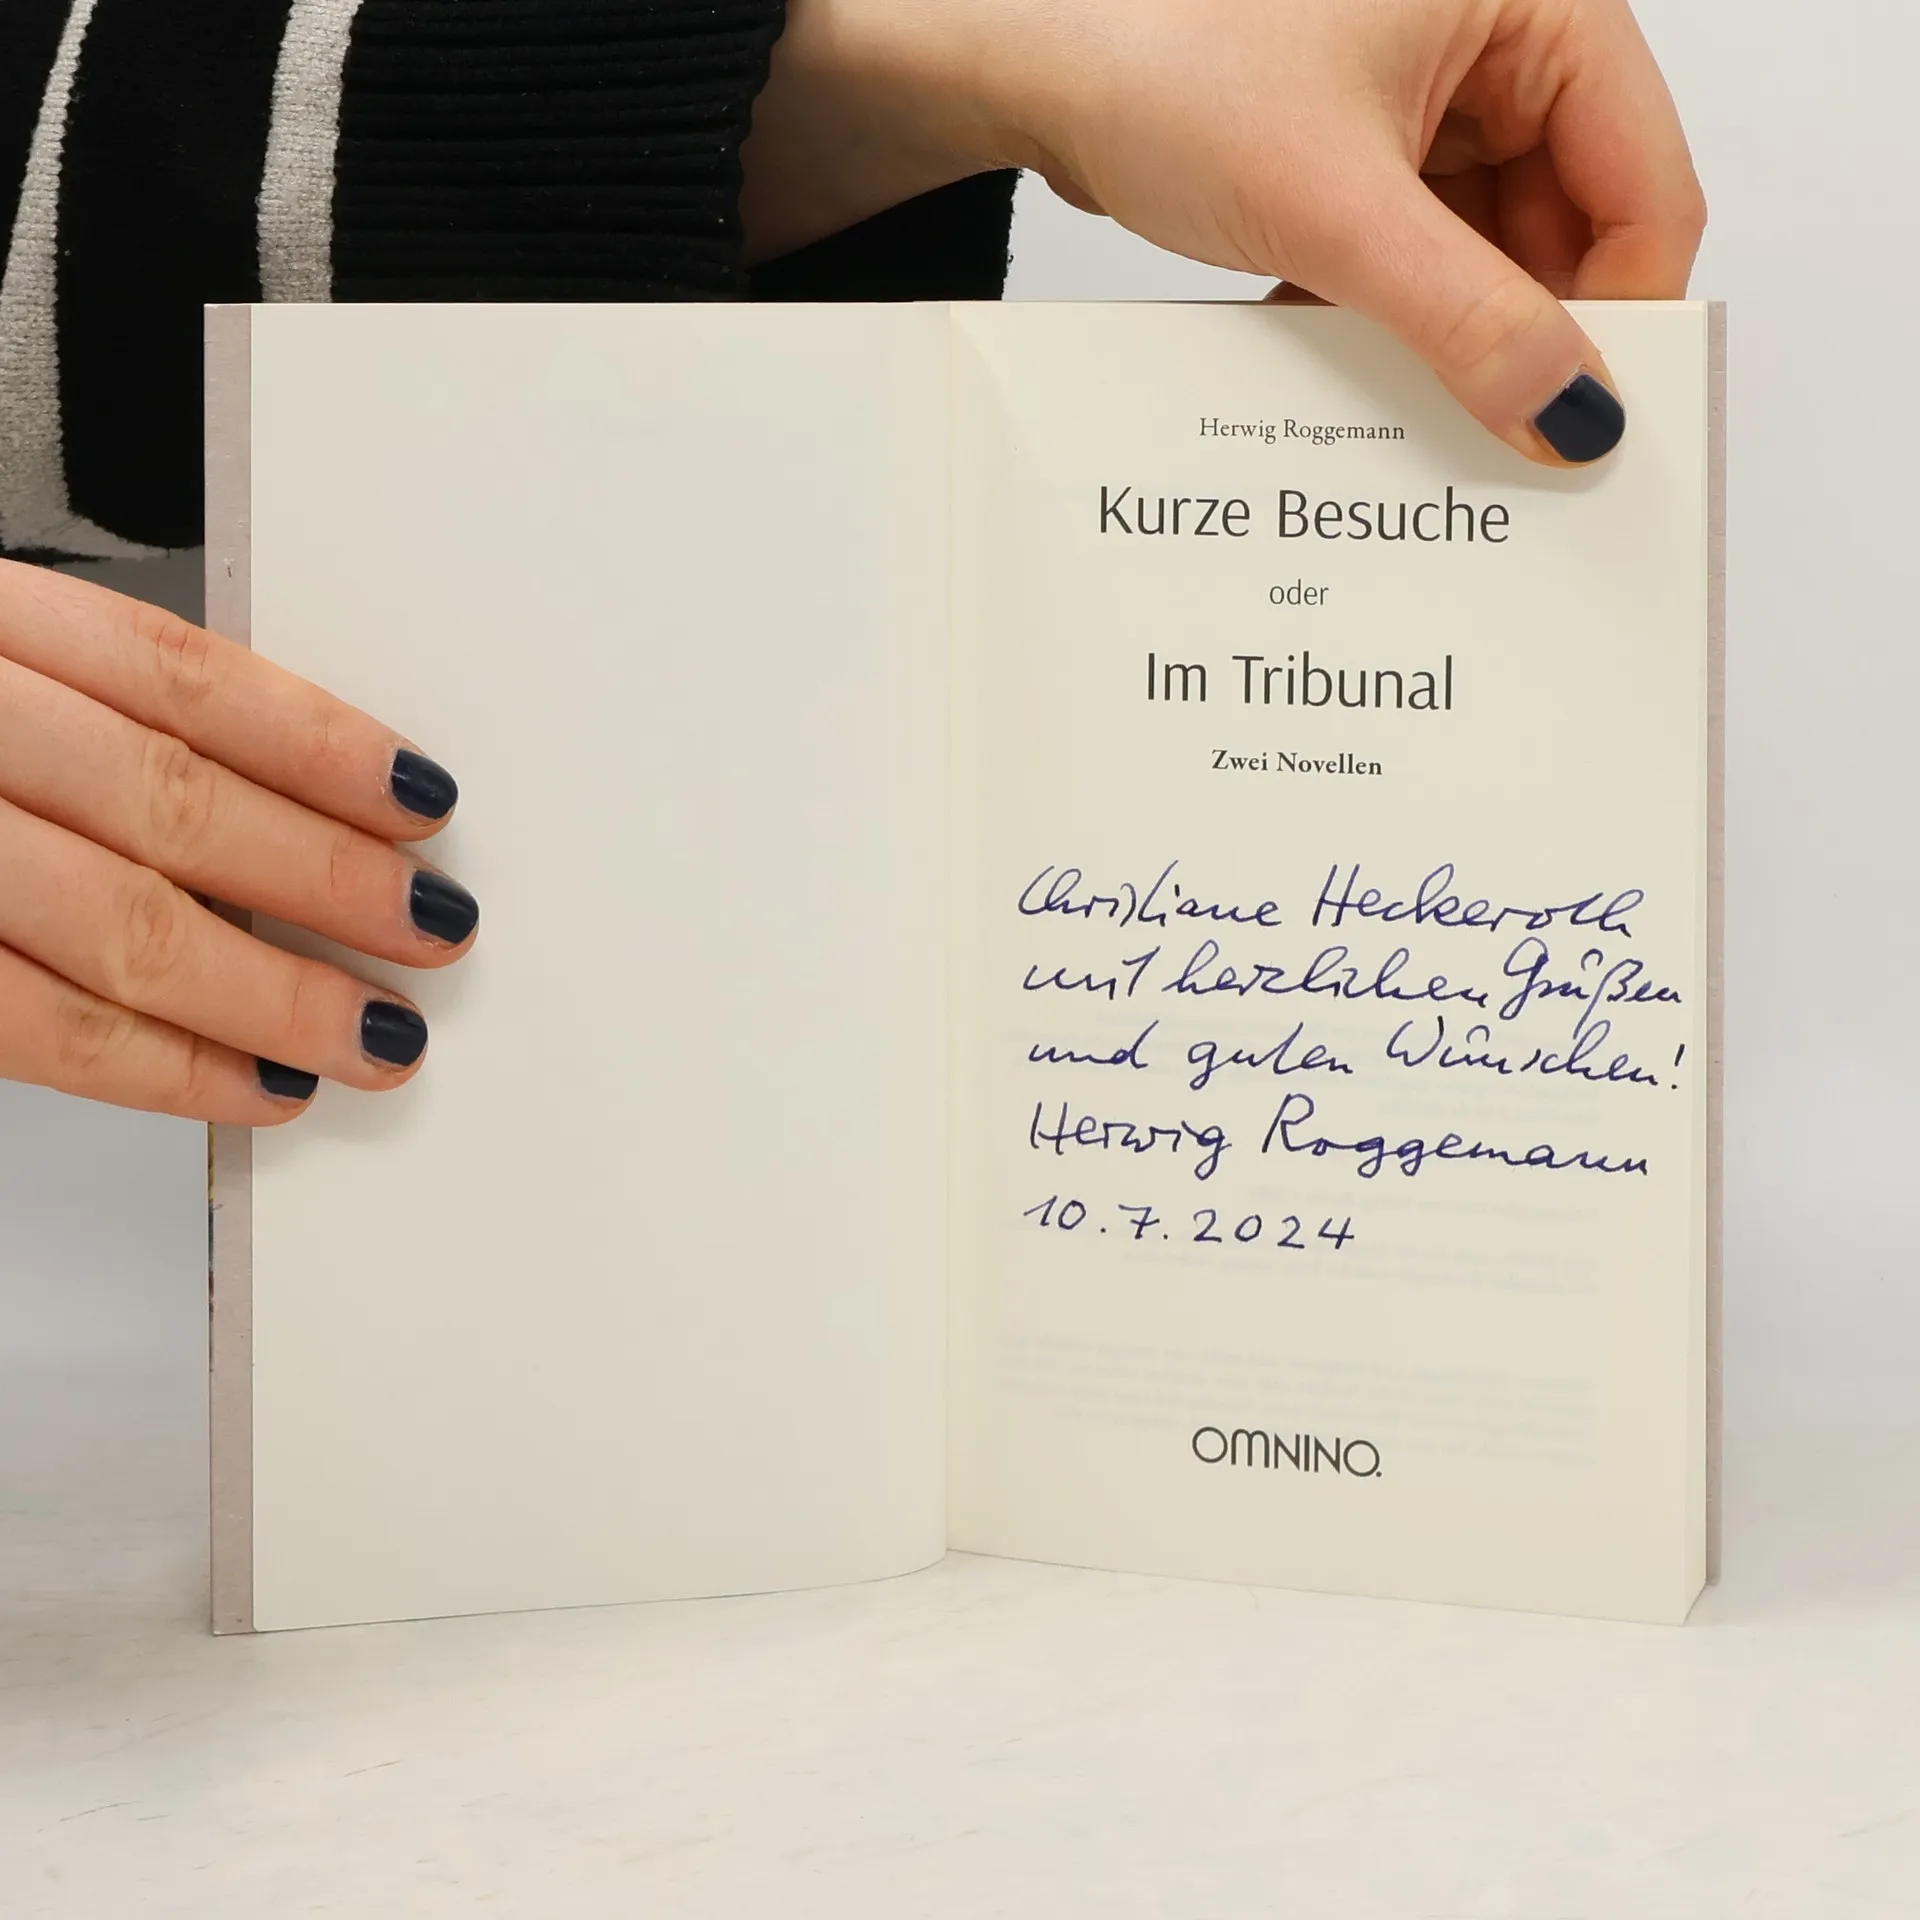 Herwig Roggemann
Kurze Besuche
oder
Im Tribunal
Zwei Novellen
Christiane Heckeroth
mit herzlichen Grüßen
und guten Wünschen!
Herwig Roggemann
10.7.2024
OMNINO.